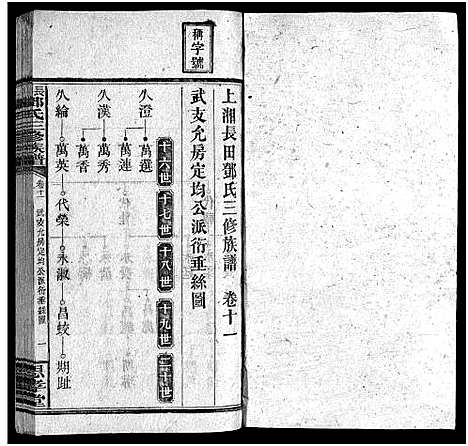 稱字號
上湘長田鄧氏三修族譜 卷十一
武支允房定均公派衍垂絲圖
十六世 十七世 十八世 十九世 二十世
久澄 萬選
萬連
久漢 萬秀
萬香
久綸 萬英 代榮 永淑 昌蛟 期趾
鄧氏三修族譜 卷十一 武支允房定均公派衍垂絲圖 一